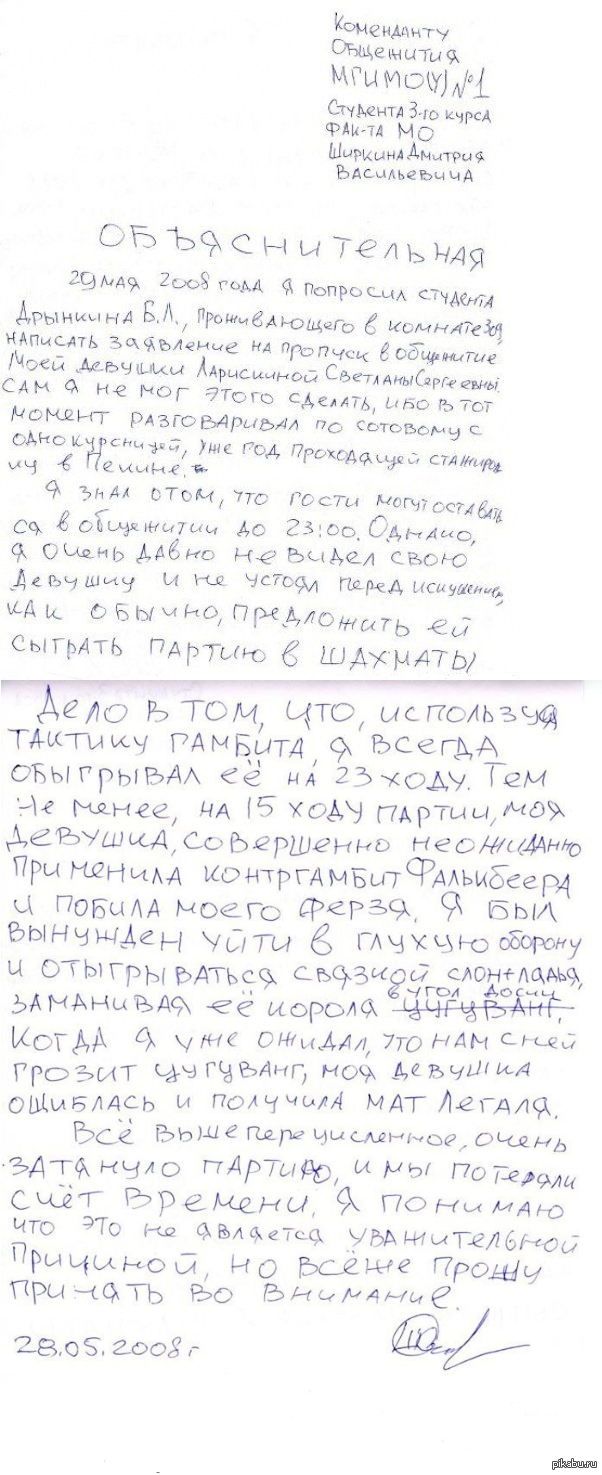 Коменданту
Общежития
МГИМО(У) №1
Студента 3-го курса
Фак-та МО
Ширкина Дмитрия
Васильевича
Объяснительная
29 мая 2008 года я попросил студента
Дрынкина Б.Л., проживающего в комнате
написать заявление на пропуск в общежитие
Моей девушки Ларискиной Светланы Сергеевны.
Сам я не мог этого сделать, ибо в тот
момент разговаривал по сотовому с
однокурсницей, уже год проходящей стажиров
ку в Пекине.
Я знал о том, что гости могут оставать
ся в общежитии до 23:00. Однако,
я очень давно не видел свою
девушку и не устоял перед искушением,
как обычно, предложить ей
сыграть партию в шахматы
Дело в том, что, используя
тактику гамбита, я всегда
обыгрывал её на 23 ходу. Тем
не менее, на 15 ходу партии, моя
девушка, совершенно неожиданно
применила контргамбит Фалькбеера
и побила моего ферзя. Я был
вынужден уйти в глухую оборону
и отыгрываться связкой слон+ладья,
заманивая её короля в угол доски цугцванг.
Когда я уже ожидал, что нам с ней
грозит цугуванг, моя девушка
ошиблась и получила мат Легаля.
Всё вышеперечисленное, очень
затянуло партию, и мы потеряли
счёт времени. Я понимаю
что это не является уважительной
причиной, но всёже прошу
принять во внимание.
28.05.2008г
pikabu.ru